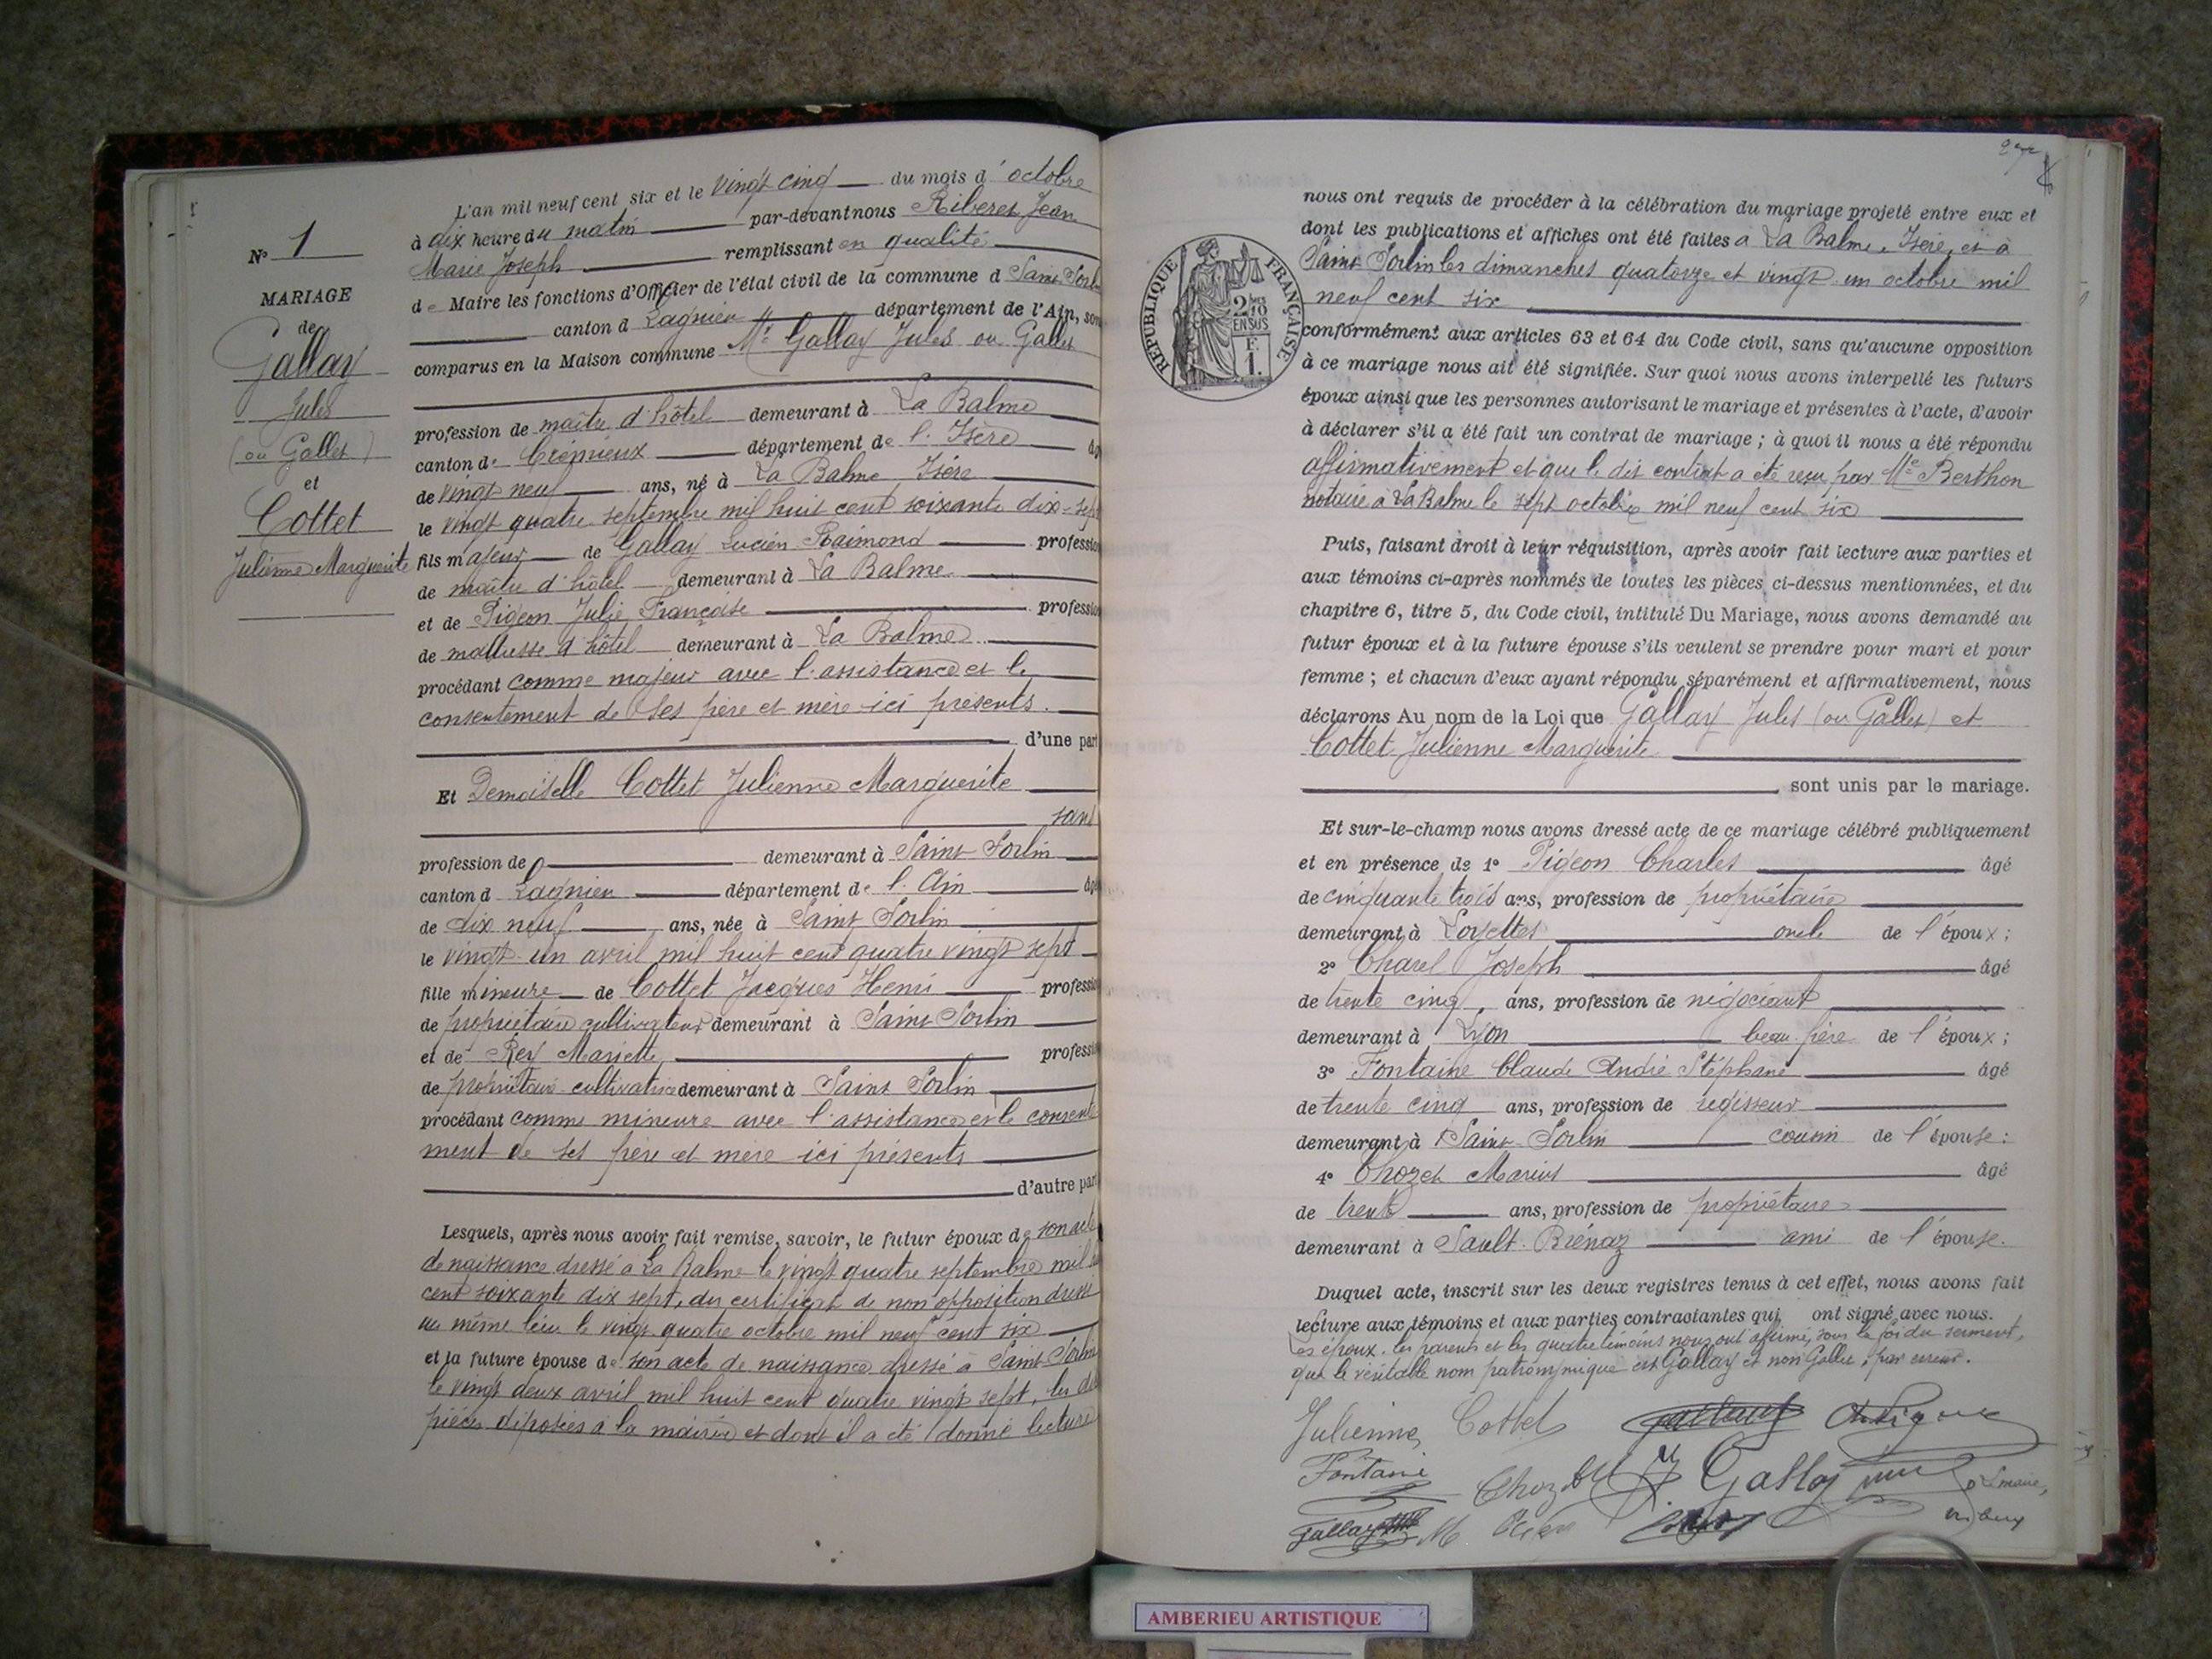 N° 1
MARIAGE
de
Gallay
Jules
(ou Gallet)
et
Cottet
Julienne Marguerite
L'an mil neuf cent six et le vingt cinq du mois d'octobre
à dix heure du matin par-devant nous Riberet Jean
Marie Joseph remplissant en qualité
de Maire les fonctions d'Officier de l'état civil de la commune d Saint Sorlin
canton d Lagnieu département de l'Ain, son
comparus en la Maison commune Mr Gallay Jules ou Gallet
profession de maître d'hôtel demeurant à La Balme
canton de Crémieux département de l'Isère âg
de vingt neuf ans, né à La Balme Isère
le vingt quatre septembre mil huit cent soixante dix-sept
fils majeur de Gallay Lucien Raimond professio
de maître d'hôtel demeurant à La Balme
et de Pigeon Julie Françoise professio
de maîtresse d'hôtel demeurant à La Balme
procédant comme majeur avec l'assistance et le
consentement de ses père et mère ici présents.
d'une part
Et Demoiselle Cottet Julienne Marguerite
sans
profession de demeurant à Saint Sorlin
canton d Lagnieu département de l'Ain âgé
de dix neuf ans, née à Saint Sorlin
le vingt un avril mil huit cent quatre vingt sept
fille mineure de Cottet Jacques Henri professio
de propriétaire cultivateur demeurant à Saint Sorlin
et de Rey Mariette professio
de propriétaire cultivatrice demeurant à Saint Sorlin
procédant comme mineure avec l'assistance et le consente
ment de ses père et mère ici présents
d'autre part
Lesquels, après nous avoir fait remise, savoir, le futur époux de son acte
de naissance dressé à La Balme le vingt quatre septembre mil
cent soixante dix sept, du certificat de non opposition dressé
au même lieu le vingt quatre octobre mil neuf cent six
et la future épouse de son acte de naissance dressé à Saint Sorlin
le vingt deux avril mil huit cent quatre vingt sept, les
pièces déposées à la mairie et dont il a été donné lecture
RÉPUBLIQUE FRANÇAISE
2/10
EN SUS
F.
1.
nous ont requis de procéder à la célébration du mariage projeté entre eux et
dont les publications et affiches ont été faites a La Balme, Isère, et à
Saint Sorlin les dimanches quatorze et vingt un octobre mil
neuf cent six
conformément aux articles 63 et 64 du Code civil, sans qu'aucune opposition
à ce mariage nous ait été signifiée. Sur quoi nous avons interpellé les futurs
époux ainsi que les personnes autorisant le mariage et présentes à l'acte, d'avoir
à déclarer s'il a été fait un contrat de mariage ; à quoi il nous a été répondu
affirmativement et que le dit contrat a été reçu par Me Berthon
notaire à La Balme le sept octobre mil neuf cent six
Puis, faisant droit à leur réquisition, après avoir fait lecture aux parties et
aux témoins ci-après nommés de toutes les pièces ci-dessus mentionnées, et du
chapitre 6, titre 5, du Code civil, intitulé Du Mariage, nous avons demandé au
futur époux et à la future épouse s'ils veulent se prendre pour mari et pour
femme ; et chacun d'eux ayant répondu séparément et affirmativement, nous
déclarons Au nom de la Loi que Gallay Jules (ou Gallet) et
Cottet Julienne Marguerite
sont unis par le mariage.
Et sur-le-champ nous avons dressé acte de ce mariage célébré publiquement
et en présence de 1° Pigeon Charles âgé
de cinquante trois ans, profession de propriétaire
demeurant à Loyettes oncle de l'époux ;
2° Charel Joseph âgé
de trente cinq ans, profession de négociant
demeurant à Lyon beau-frère de l'époux ;
3° Fontaine Claude André Stéphane âgé
de trente cinq ans, profession de régisseur
demeurant à Saint-Sorlin cousin de l'épouse :
4° Chozet Marius âgé
de trente ans, profession de propriétaire
demeurant à Sault-Brénaz ami de l'épouse.
Duquel acte, inscrit sur les deux registres tenus à cet effet, nous avons fait
lecture aux témoins et aux parties contractantes qui ont signé avec nous.
Les époux, les parents et les quatre témoins nous ont affirmé, sous la foi du serment,
que le véritable nom patronymique est Gallay et non Gallet, par erreur.
Julienne Cottet
Fontaine Chozet Gallay
Gallay
AMBERIEU ARTISTIQUE